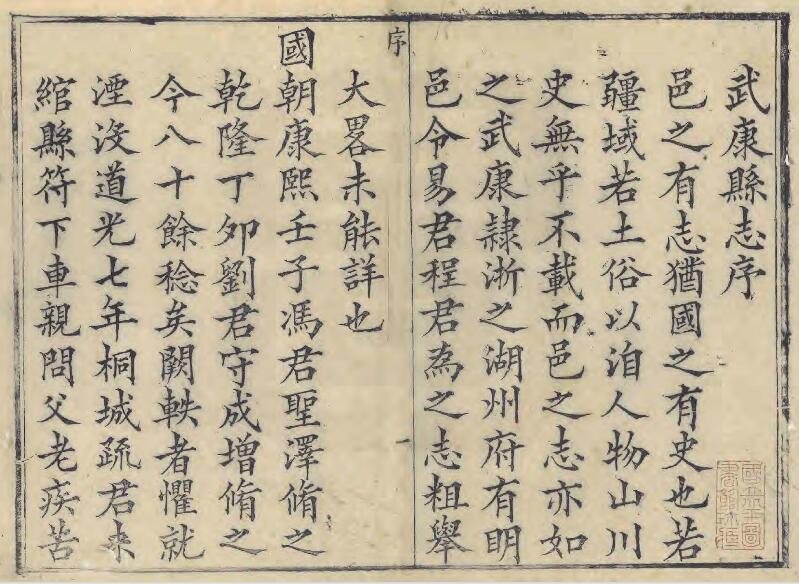 武康縣志序
邑之有志猶國之有史也若
疆域若土俗以洎人物山川
史無乎不載而邑之志亦如
之武康隸浙之湖州府有明
邑令易君程君為之志粗舉
序
一
大畧未能詳也
國朝康熙壬子馮君聖澤脩之
乾隆丁卯劉君守成增脩之
今八十餘稔矣闕軼者懼就
湮沒道光七年桐城疏君来
綰縣符下車親問父老疾苦